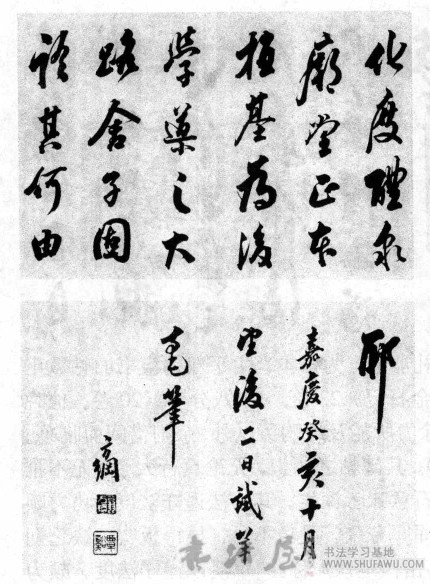 化度醴泉
廟堂正本
植基為後
學導之大
路舍子固
其何由
耶
嘉慶癸亥十月
望後二日試羊
毫筆
方綱
书法学习基地
WWW.SHUFAWU.COM